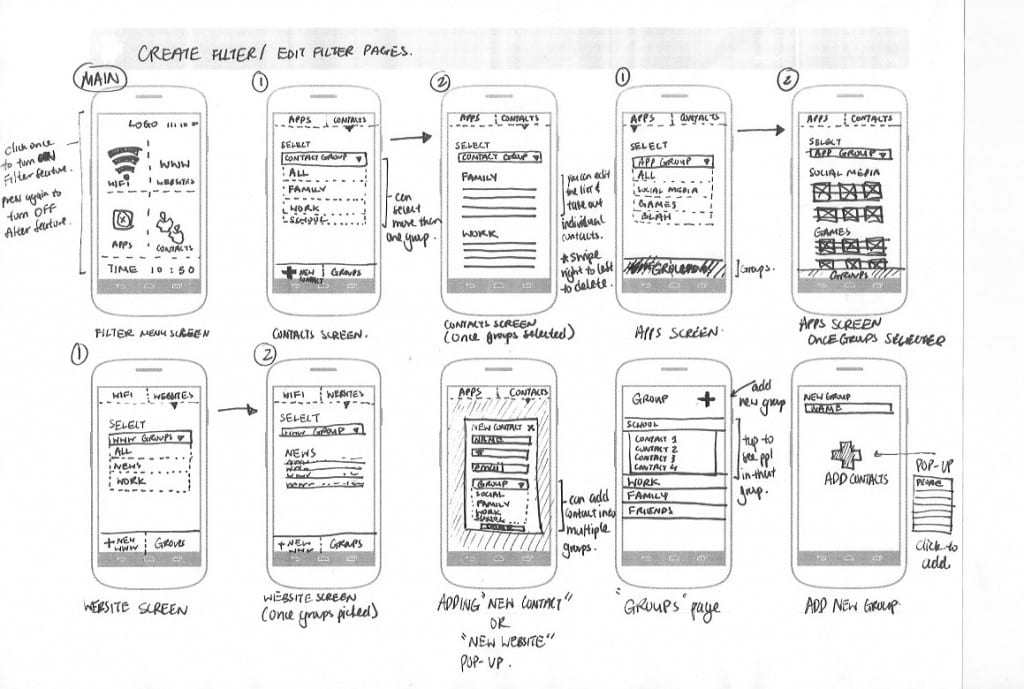 CREATE FILTER / EDIT FILTER PAGES.
MAIN
click once
to turn ON
Filter feature.
press again to
turn OFF
filter feature.
LOGO
WIFI
WWW
WEBSITES
APPS
CONTACTS
TIME 10:50
FILTER MENU SCREEN
1
APPS CONTACTS
SELECT
CONTACT GROUP
ALL
FAMILY
WORK
SCHOOL
+ NEW
CONTACT
GROUPS
can
select
more than
one group.
CONTACTS SCREEN.
2
APPS CONTACTS
SELECT
CONTACT GROUP
FAMILY
WORK
you can edit
the list &
take out
individual
contacts.
* Swipe
right to left
to delete.
CONTACTS SCREEN
(Once groups selected)
1
APPS CONTACTS
SELECT
APP GROUP
ALL
SOCIAL MEDIA
GAMES
BLAH
Groups.
APPS SCREEN.
2
APPS CONTACTS
SELECT
APP GROUP
SOCIAL MEDIA
GAMES
GROUPS
APPS SCREEN
ONCE GROUPS SELECTED
1
WIFI WEBSITES
SELECT
WWW GROUPS
ALL
NEWS
WORK
+ NEW
WWW
GROUPS
WEBSITE SCREEN
2
WIFI WEBSITES
SELECT
WWW GROUP
NEWS
+ NEW
WWW
GROUPS
WEBSITE SCREEN
(Once groups picked)
APPS CONTACTS
NEW CONTACT X
NAME
EMAIL
GROUP
SOCIAL
FAMILY
WORK
SCHOOL
can add
contact into
multiple
groups.
ADDING "NEW CONTACT"
OR
"NEW WEBSITE"
POP-UP.
GROUP +
add
new group
SCHOOL
CONTACT 1
CONTACT 2
CONTACT 3
CONTACT 4
WORK
FAMILY
FRIENDS
tap to
see ppl
in that
group.
"GROUPS" page
NEW GROUP
NAME
ADD CONTACTS
POP-UP
PEOPLE
click to
add
ADD NEW GROUP.